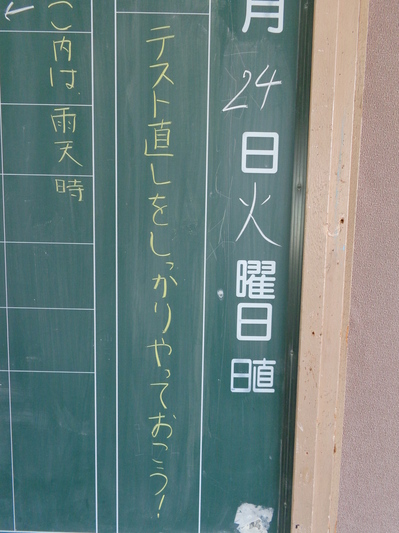 月24日火曜日
日直
テスト直しをしっかりやっておこう!
←
()内は、雨天時